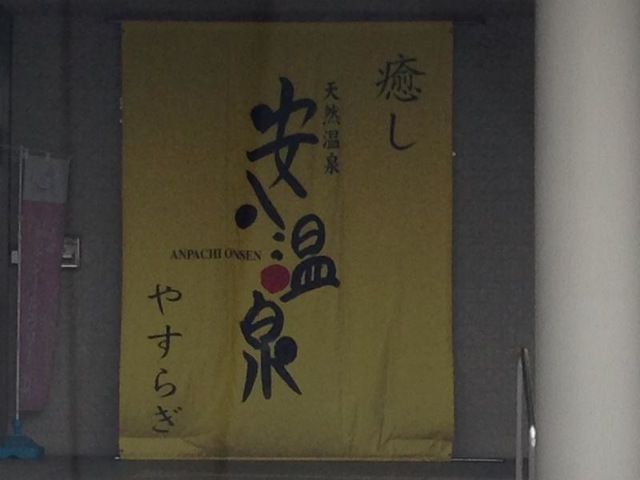 癒し
天然温泉
安八温泉
ANPACHI ONSEN
やすらぎ